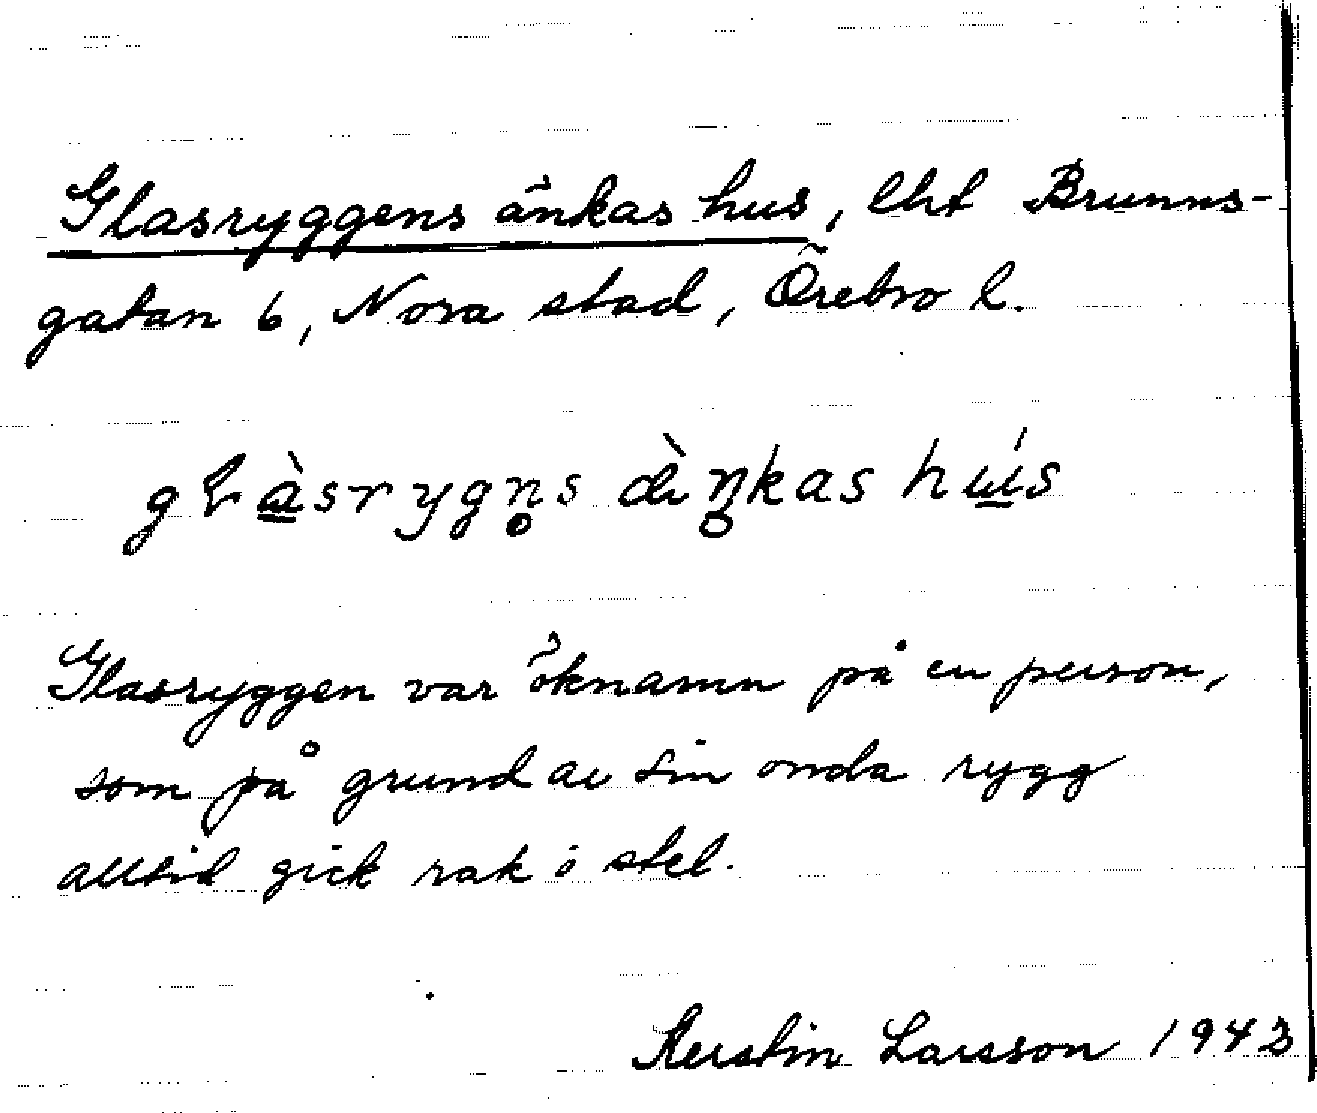 Glasryggens änkas hus, lht Brunns-
gatan 6, Nora stad, Örebro l.
Glasryggen var öknamn på en person,
som på grund av sin onda rygg
alltid gick rak o stel.
Kerstin Larsson 1943